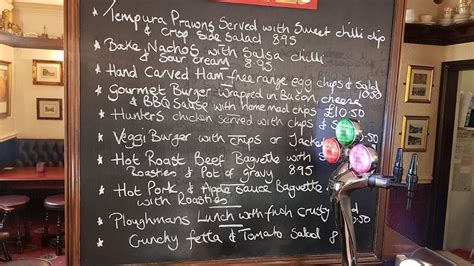 Tempura Prawns Served with Sweet chilli dip
& crop Side Salad 8.95
Bake Nachos with Salsa chilli
& Sour cream 8.95
Hand Carved Ham free range egg chips & Salad
Gourmet Burger wrapped in Bacon, cheese 10.50
& BBQ Sause with homemad chips £10.50
Hunters chicken served with chips & Salad
Veggi Burger with chips or Jacke
Hot Roast Beef Baguette with
Roasties & Pot of gravy 8.95
Hot Pork & Apple sauce Baguette
with Roasties
Ploughmans Lunch with fresh crusty 10.50
Crunchy fetta & Tomato Salad 8